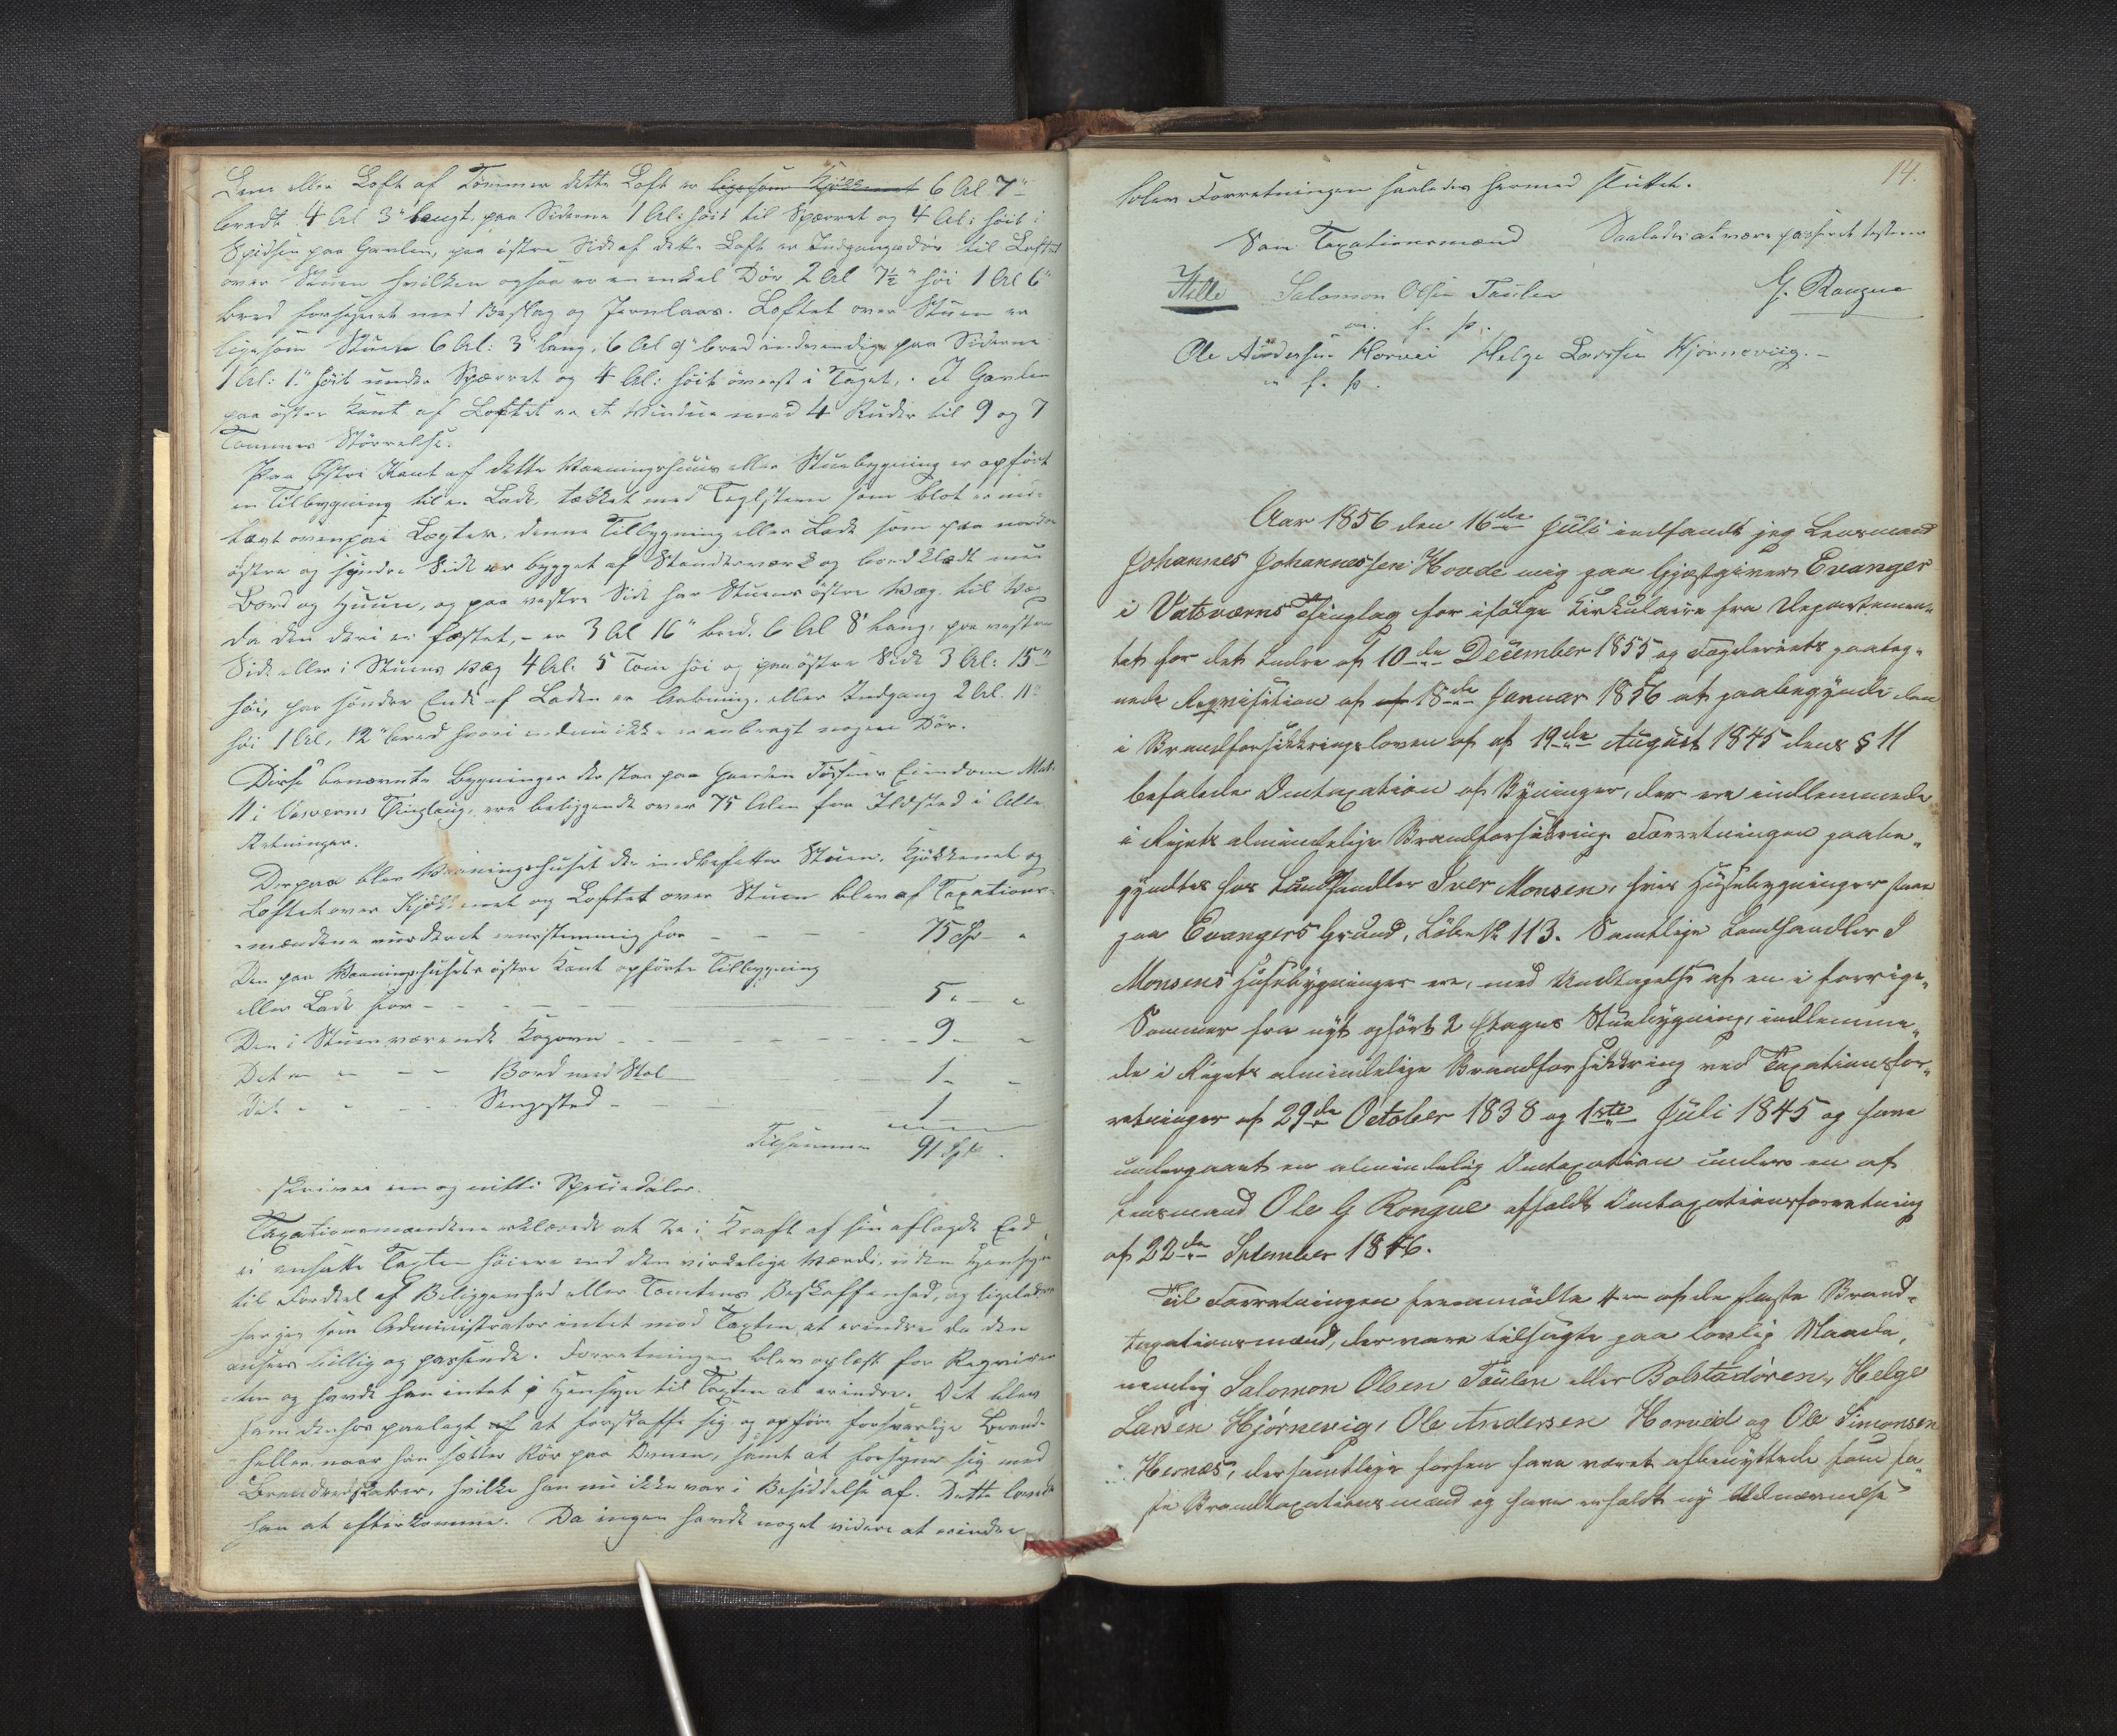 Lem eller Loft af Tømmer dette Loft er ligesom Kjøkkenet 6 Al 7"
bredt 4 Al 3" langt, paa Siderne 1 Al: høit til Sparret og 4 Al: høit i
Spidsen paa Gavlen, paa østre Side af dette Loft er Indgangsdør til Loftet
over Stuen hvilken ogsaa er en enkel Dør 2 Al 7½" høi 1 Al 6"
bred forsynet med Beslag og Jernlaas. Loftet over Stuen er
ligesom Stuen 6 Al: 3" lang, 6 Al 9" bred indvendig paa Siderne
1 Al: 1" høit under Sparret og 4 Al: høit øverst i Taget. I Gavlen
paa østre Kant af Loftet er et Vindue med 4 Ruder til 9 og 7
Tommers Størrelse.
Paa Østre Kant af dette Vaaningshuus eller Stuebygning er opført
en Tilbygning til en Lade, tækket med Taglsteen som blot er ned-
lagt ovenpaa Lægter, denne Tilbygning eller Lade som paa nordre
østre og søndre Side er bygget af Stenderværk og bordklædt med
Bord og Huun, og paa vestre Side har Stuens østre Væg til Væg
da den deri er fæstet, - er 3 Al 16" bred. 6 Al 8" lang, paa vestre
Side eller i Stuens Væg 4 Al. 5 Tom høi og paa østre Side 3 Al: 15"
høi, paa søndre Ende af Laden er Aabning eller Indgang 2 Al. 11"
høi 1 Al. 12" bred hvori endnu ikke er anbragt nogen Dør.
Disse benævnte Bygninger der staa paa Gaarden Eiendom Mat.
11 i Vasverns Thinglaug, ere beliggende over 75 Alen fra Ildsted i alle
Retninger.
Derpaa blev Vaaningshuset der indbefatter Stuen, Kjøkkenet og
Loftet over Kjøkkenet og Loftet over Stuen blev af Taxations-
mændene vurderet eenstemmig for - - - - 75 Spd "
Den paa Vaaningshusets østre Kant opførte Tilbygning
eller Lade for - - - - - - 5 - "
Den i Stuen værende Kogovn - - - - - - 9 - "
Det " " - - Bord med Stol - - - 1 - "
Det " " - - Sengested - - - 1
Tilsammen 91 Spd.
skriver een og nitti Speciedaler.
Taxationsmændene erklærede at de i Kraft af sin aflagde Eed
ei ansatte Taxten høiere end den virkelige Værdi, uden Hensyn
til Fordeel af Beliggenhed eller Tomtens Beskaffenhed, og ligeledes
har jeg som Administrator intet mod Taxten at erindre da den
ansees billig og passende. Forretningen blev oplæst for Reqviren-
ten og havde han intet i Hensyn til Taxten at erindre. Det blev
ham derhos paalagt at forskaffe sig og opføre forsvarlige Brand-
heller, naar han sætter Rør paa Ovnen, samt at forsyne sig med
Brandredskaber, hvilke han nu ikke var i Besiddelse af. Dette lovede
han at efterkomme. Da ingen havde noget videre at erindre
14.
blev Forretningen saaledes hermed sluttet.
Som Taxationsmænd Saaledes at være passeret testerer
Hille Salomon Olsen Taulen G. Rongue
m. f. p.
Ole Andersen Horvei Helge Larssen Hjørnevig. -
m. f. p.
Aar 1856 den 16de Juli indfandt jeg Lensmand
Johannes Johannessen Hovde mig paa Gjæstgiveri Evanger
i Vatsværns Thinglag for ifølge Cirkulaire fra Departemen-
tet for det Indre af 10de December 1855 og Fogderiets paateg-
nede Reqvisition af af 18de Januar 1856 at paabegynde den
i Brandforsikkringsloven af af 19de August 1845 dens § 11
befalede Omtaxation af Byninger, der ere indlemmede
i Rigets almindelige Brandforsikring. Forretningen paabe-
gyndtes hos Landhandler Iver Monsen, hvis Husebygninger staae
paa Evangers Grund, Løbe № 113. Samtlige Landhandler I
Monsens Husebygninger ere, med Undtagelse af en i forrige
Sommer fra nyt opført 2 Etages Stuebygning, indlemme-
de i Rigets almindelige Brandforsikkring ved Taxationsfor-
retninger af 29de October 1838 og 1ste Juli 1845 og have
undergaaet en almindelig Omtaxation under en af
Lensmand Ole G Rongve afholdt Omtaxationsforretning
af 22de September 1846.
Til Forretningen fremmødte 4re af de faste Brand-
taxationsmænd, der vare tilsagte paa lovlig Maade,
nemlig Salomon Olsen Taulen eller Bolstadøren, Helge
Larsen Hjørnevig, Ole Andersen Horveid og Ole Simonsen
Hernæs, der samtlige forhen have været afbenyttede som fa-
ste Brandtaxationsmænd og have erholdt ny Udnævnelse